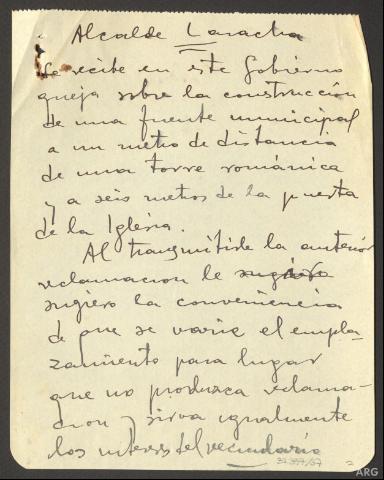 Alcalde Laracha
Se recibe en este Gobierno
queja sobre la construccion
de una fuente municipal
a un metro de distancia
de una torre románica
y a seis metros de la puerta
de la Iglesia.
Al transmitirle la anterior
reclamacion le sugiero
sugiero la conveniencia
de que se varie el empla-
zamiento para lugar
que no produzca reclama-
cion y sirva igualmente
los intereses del vecindario
ARG